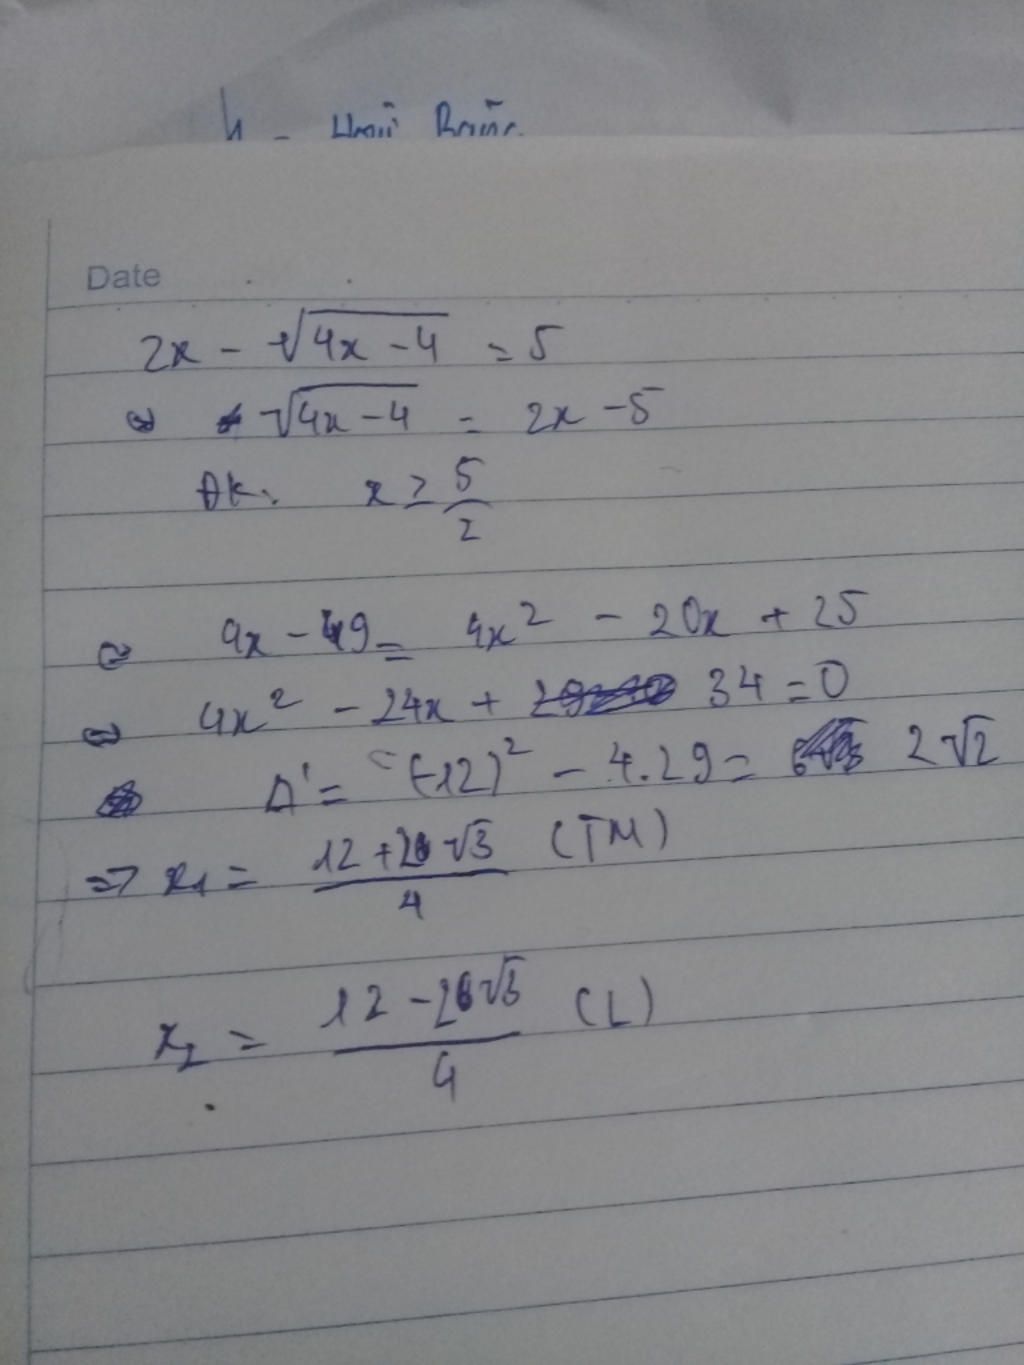 Date
2x - √(4x - 4) = 5
⇔ √(4x - 4) = 2x - 5
ĐK: x ≥ 5/2
⇔ 4x - 49 = 4x² - 20x + 25
⇔ 4x² - 24x + 34 = 0
Δ' = (-12)² - 4.29 = 2√2
=> x₁ = (12 + 2√3)/4 (TM)
x₂ = (12 - 2√3)/4 (L)